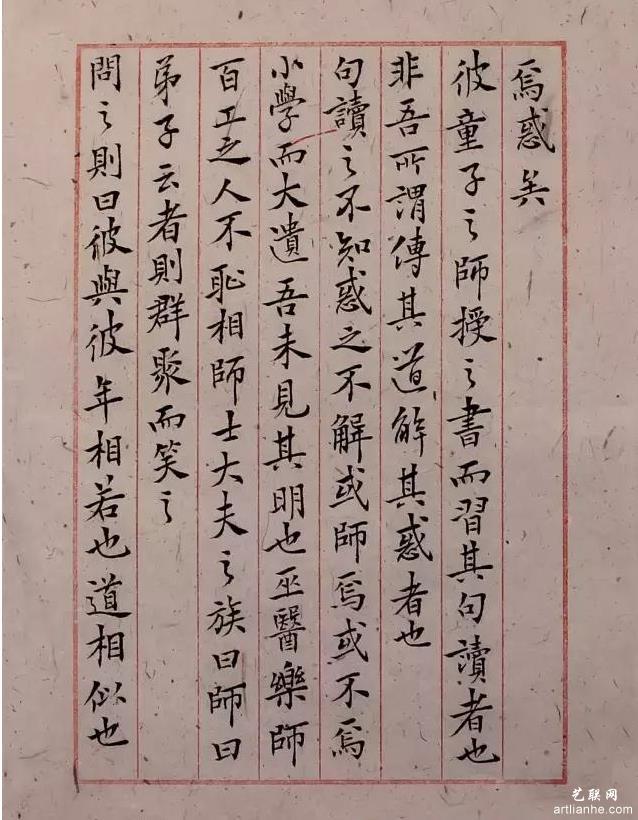 焉惑矣
彼童子之師授之書而習其句讀者也
非吾所謂傳其道解其惑者也
句讀之不知惑之不解或師焉或不焉
小學而大遺吾未見其明也巫醫樂師
百工之人不恥相師士大夫之族曰師曰
弟子云者則群聚而笑之
問之則曰彼與彼年相若也道相似也
艺联网
artlianhe.com